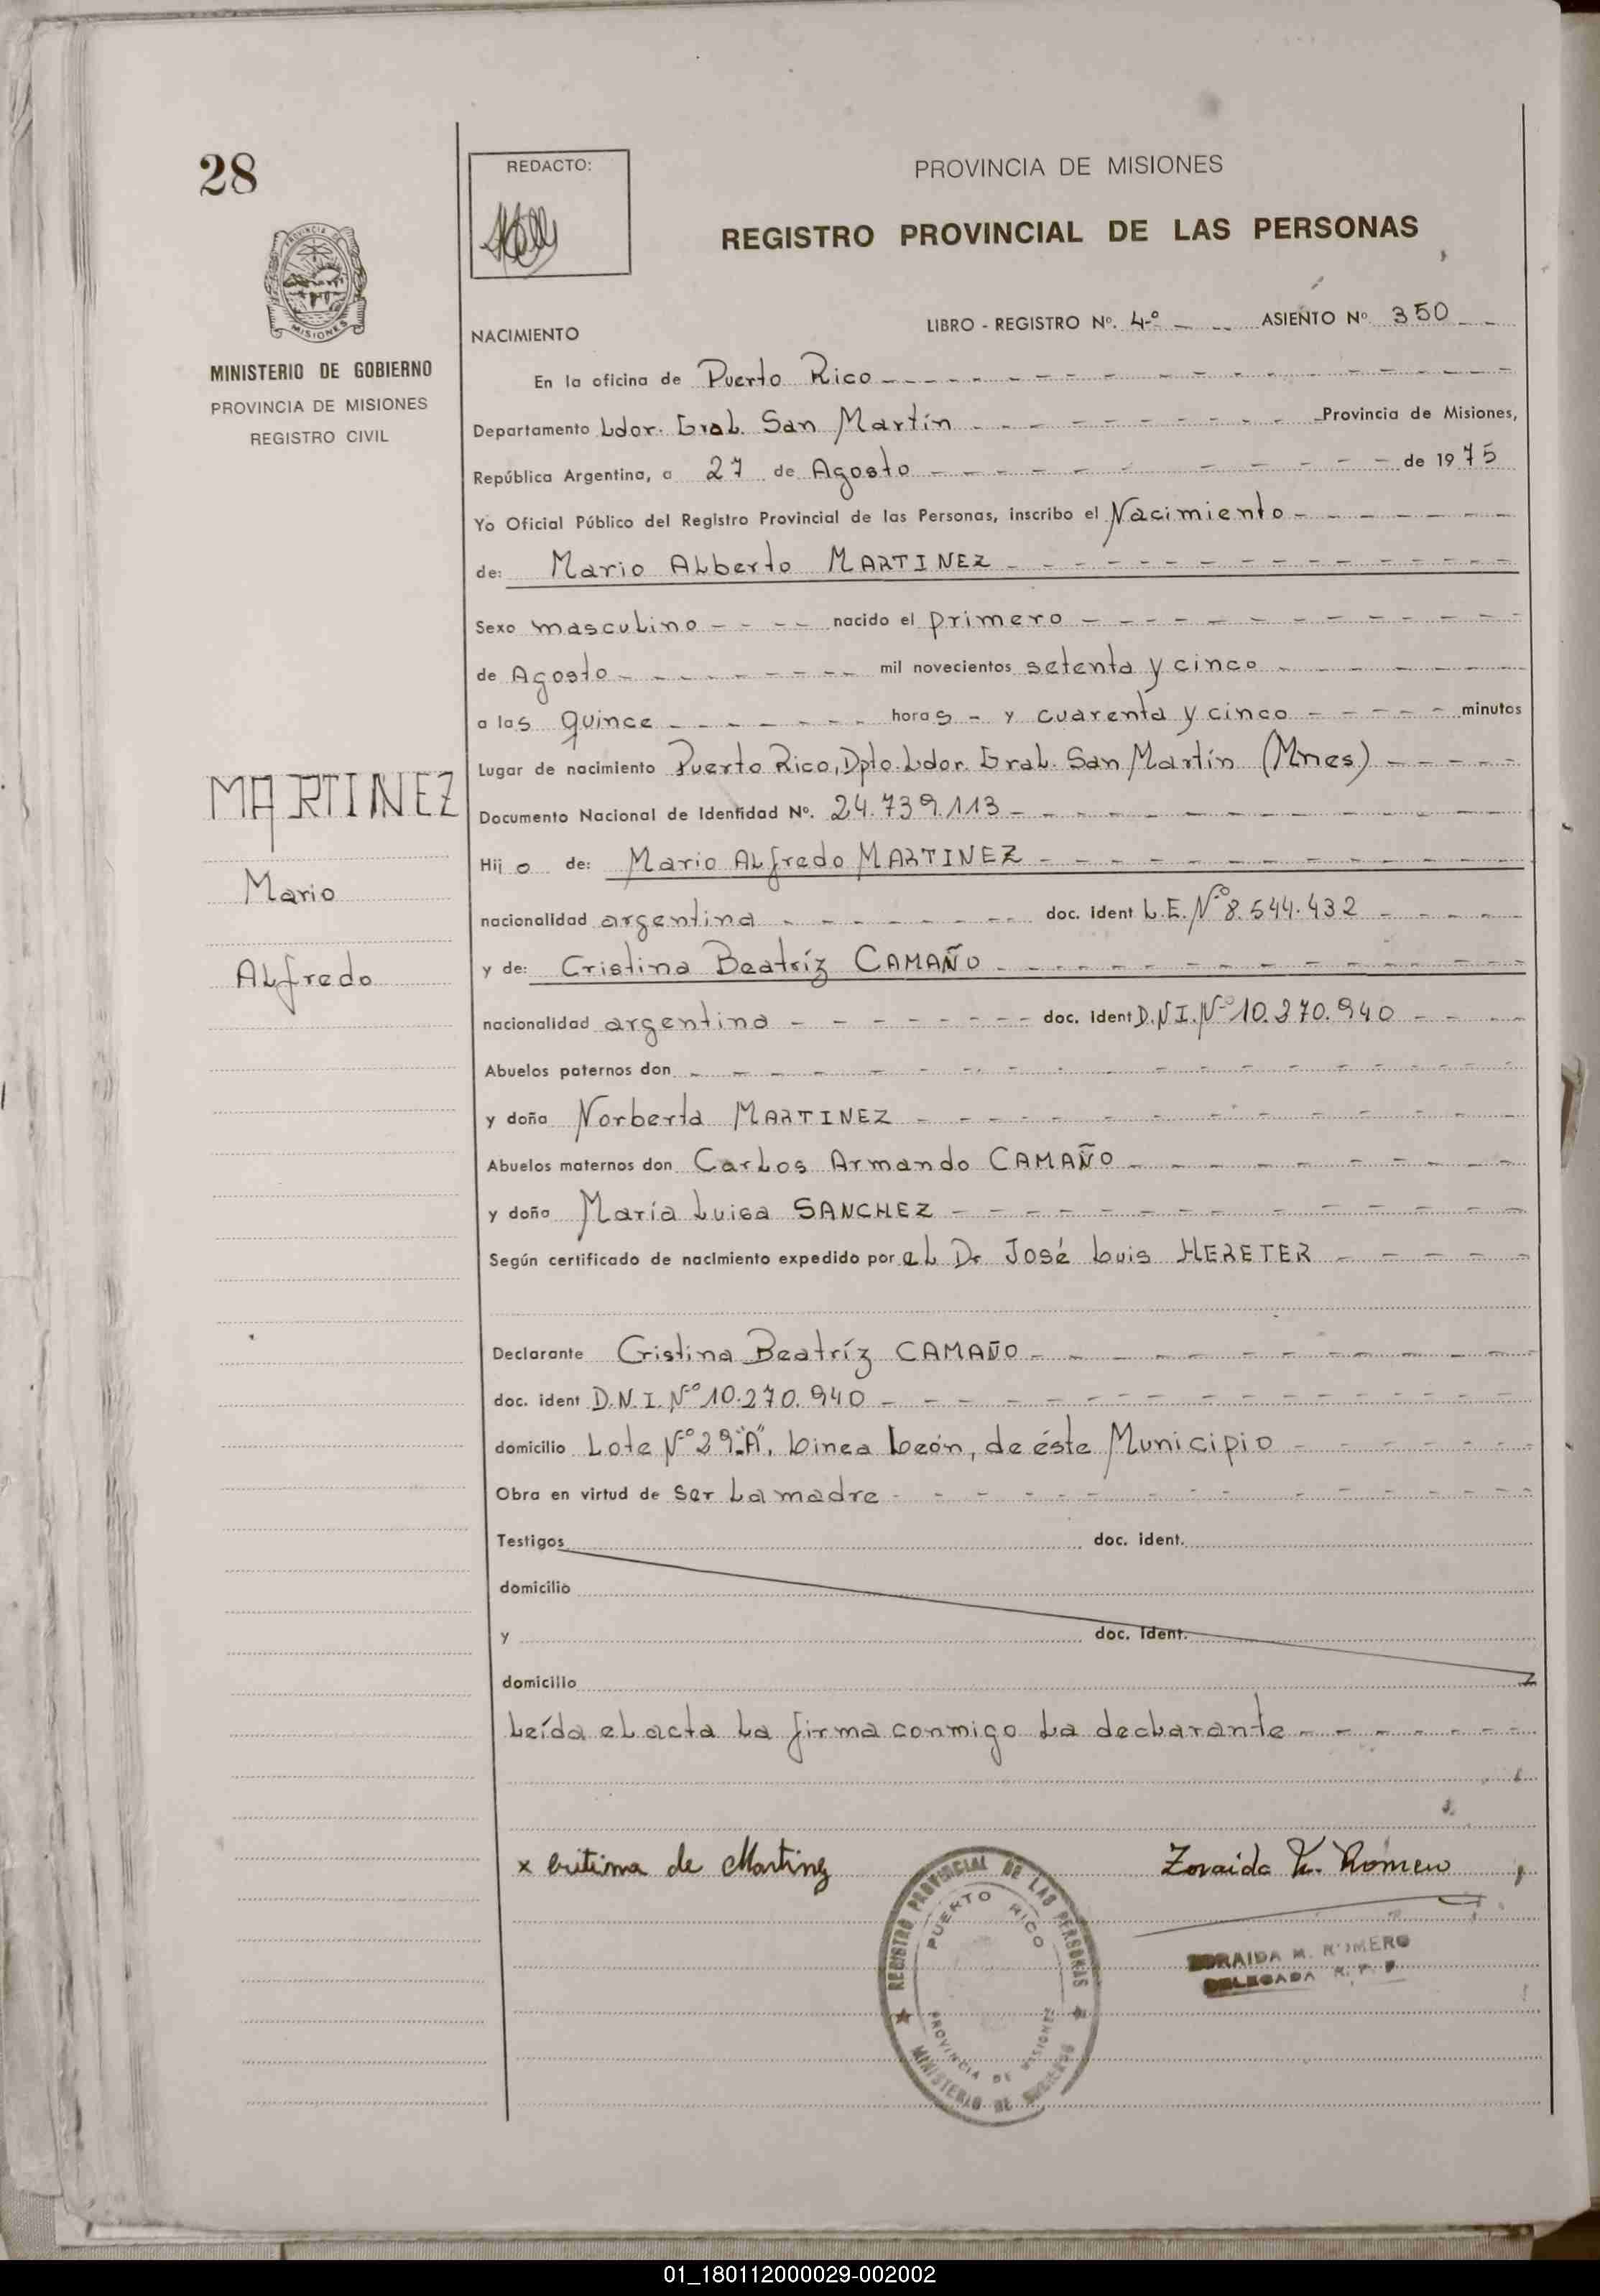 28
REDACTO:
PROVINCIA DE MISIONES
REGISTRO PROVINCIAL DE LAS PERSONAS
MISIONES
MINISTERIO DE GOBIERNO
PROVINCIA DE MISIONES
REGISTRO CIVIL
NACIMIENTO
LIBRO - REGISTRO Nº. 4º ASIENTO Nº 350
En la oficina de Puerto Rico
Departamento Ldor. Gral. San Martín Provincia de Misiones,
República Argentina, a 27 de Agosto de 1975
Yo Oficial Público del Registro Provincial de las Personas, inscribo el Nacimiento
de: Mario Alberto MARTINEZ
Sexo masculino nacido el primero
de Agosto mil novecientos setenta y cinco
a las quince horas y cuarenta y cinco minutos
Lugar de nacimiento Puerto Rico, Dpto. Ldor. Gral. San Martín (Mnes)
Documento Nacional de Identidad Nº. 24.739.113
Hijo de: Mario Alfredo MARTINEZ
nacionalidad argentina doc. ident L.E. Nº 8.544.432
y de: Cristina Beatríz CAMAÑO
nacionalidad argentina doc. ident D.N.I. Nº 10.270.940
Abuelos paternos don
y doña Norberta MARTINEZ
Abuelos maternos don Carlos Armando CAMAÑO
y doña María Luisa SANCHEZ
Según certificado de nacimiento expedido por el Dr José Luis HERETER
Declarante Cristina Beatríz CAMAÑO
doc. ident D.N.I. Nº 10.270.940
domicilio Lote Nº 29 "A", Linea León, de éste Municipio
Obra en virtud de ser la madre
Testigos doc. ident.
domicilio
y doc. ident.
domicilio
Leída el acta la firma conmigo la declarante
MARTINEZ
Mario
Alfredo
x Cristina de Martinez
Zoraida M. Romero
REGISTRO PROVINCIAL DE LAS PERSONAS
PUERTO RICO
PROVINCIA DE MISIONES
MINISTERIO DE GOBIERNO
ZORAIDA M. ROMERO
DELEGADA R. P. P.
01_180112000029-002002